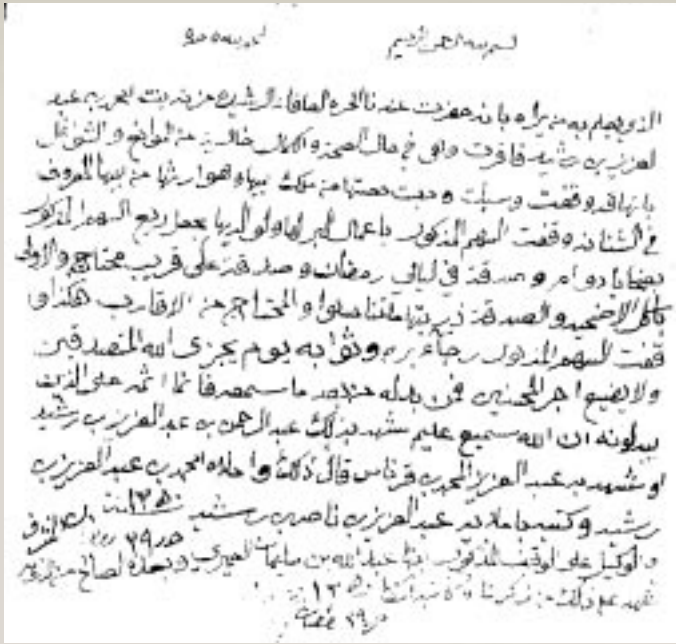 بسم الله الرحمن الرحيم الحمد لله وحده
الذي يعلم به من يراه بأنه حضرت عندنا الحره العاقلة الرشيده مزنه بنت محمد بن عبد
العزيز بن رشيد فاقرت وهي في حال الصحه والكمال خاليه من الموانع والشواغل
بانها قد وقفت وسبلت وحبست حصتها من ملك ابيها وهو ارثها من ابيها المعروف
في وقفت السهم المذكور باعمال البر لها ولوالديها يجعل ربع السهم المذكور
بضحايا دوام وصدقة في ليالي رمضان وصدقة على قريب محتاج والاولى
باكل الاضحيه والصدقة ذريتها ما تناسلوا والمحتاج من الاقارب هكذا
وقفت السهم المذكور رجاء بره وثوابه يوم يجزي الله المتصدقين
ولا يضيع اجر المحسنين فمن بدله بعد ما سمعه فانما اثمه على الذين
يبدلونه ان الله سميع عليم شهد بذلك عبد الرحمن بن عبد العزيز بن رشيد
وشهد به عبد العزيز المحمد بن قرناس قال ذلك واملاه محمد بن عبد العزيز بن
رشيد وكتبه باملائه عبد العزيز بن ناصر بن رشيد
والوكيل على الوقف المذكور ابنها عبد الله بن سليمان وبعده صالح
شهد على ذلك من ذكرنا